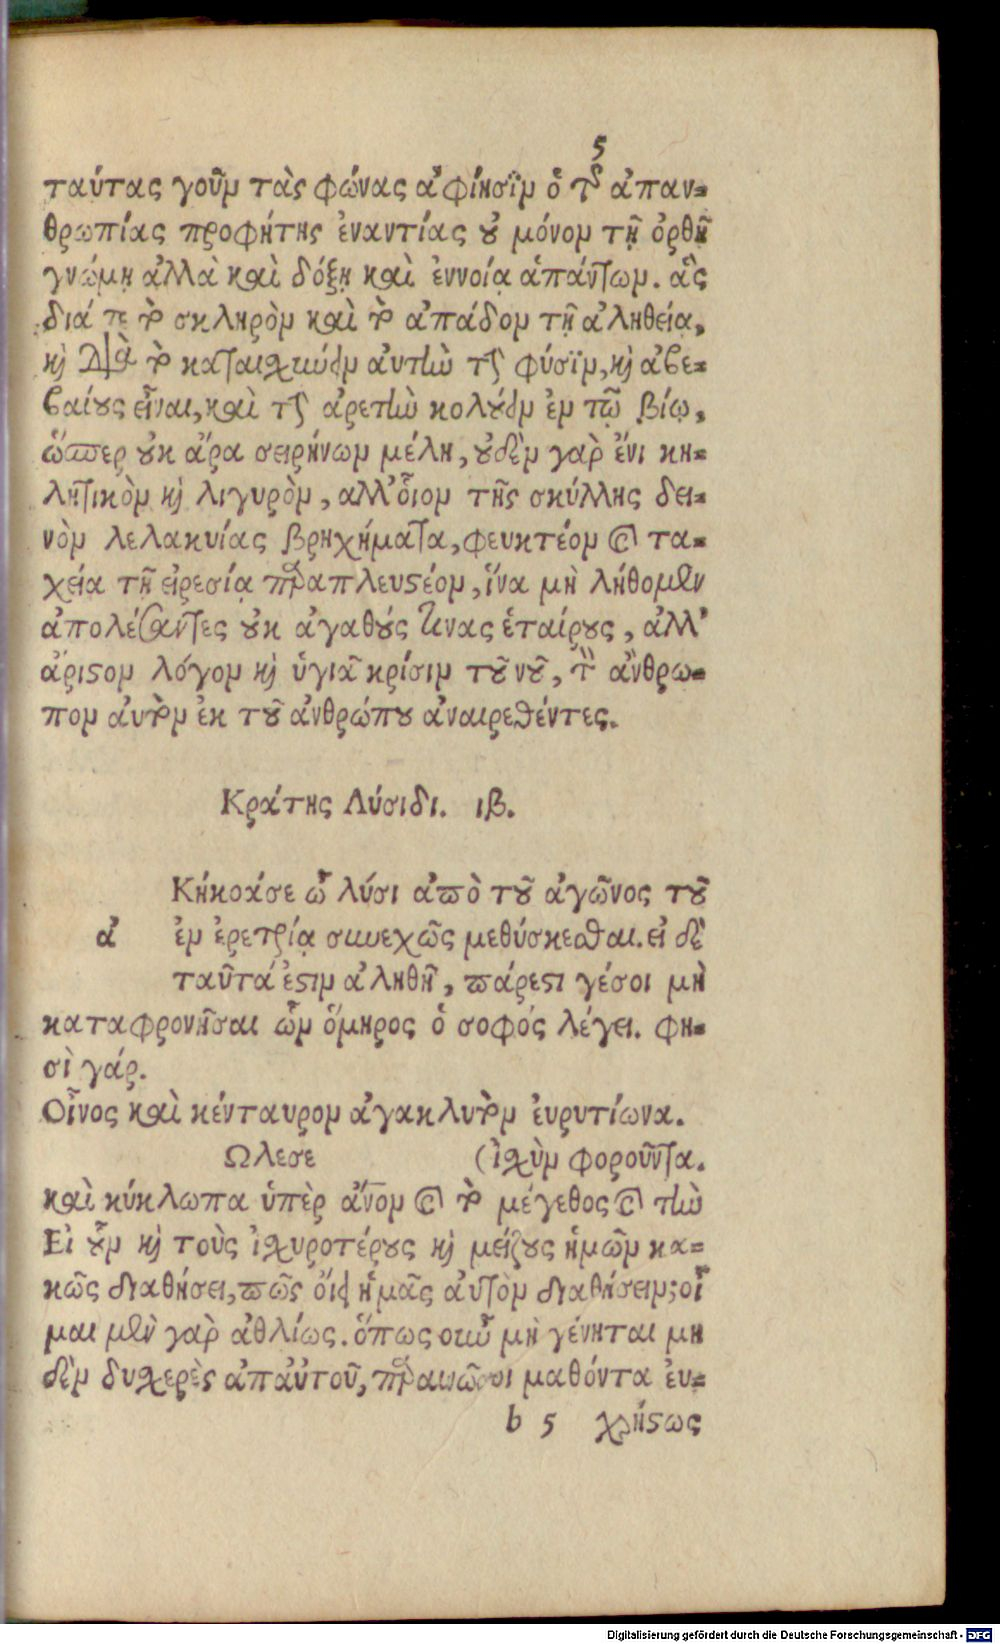 5
ταύτας γοῦν τὰς φώνας ἀφίησϊν ὁ τῆς ἀπαν-
θρωπίας προφήτης ἐναντίας ȣ μόνον τῇ ὀρθῇ
γνώμῃ ἀλλὰ καὶ δόξῃ καὶ ἐννοίᾳ ἁπάντων. ἃς
διά τε τὸ σκληρὸν καὶ τὸ ἀπάδον τῇ ἀληθείᾳ,
κὴ διὰ τὸ καταισχύνειν ἀυτὴν τὴν φύσϊν, κὴ ἀβε-
βαίȣς εἶναι, καὶ τὴν ἀρετὴν κολύειν ἐν τῷ βίῳ,
ὥσπερ ȣκ ἄρα σειρήνων μέλη, ȣδὲν γαρ ἔνι κη-
λητικὸν κὴ λιγυρὸν, αλλ' οἷον τῆς σκύλλης δει-
νὸν λελακυίας βρηχήματα, φευκτέον καὶ τα-
χείᾳ τῇ εἰρεσίᾳ παραπλευστέον, ἵνα μὴ λήθομεν
ἀπολέσαντες ȣκ ἀγαθȣς τινας ἑταίρȣς, ἀλλ'
ἄριστον λόγον κὴ ὑγιᾶ κρίσιν τȣ νȣ, τὸν ἄνθρω-
πον ἀυτὸν ἐκ τȣ ἀνθρώπȣ ἀναιρεθέντες.
Κράτης Λύσιδι. ιβ.
Κήκοάσε ὦ λύσι ἀπὸ τȣ ἀγῶνος τȣ
ἀ ἐν ἐρετρίᾳ συνεχῶς μεθύσκεσθαι. εἰ δὲ
ταῦτά ἐστιν ἀληθῆ, πάρεστι γέσοι μὴ
καταφρονῆσαι ὧν ὅμηρος ὁ σοφός λέγει. φη-
σὶ γάρ.
Οἶνος καὶ κένταυρον ἀγακλυτὸν ἐυρυτίωνα.
Ωλεσε (ἰσχὺν φοροῦντα.
καὶ κύκλωπα ὑπὲρ ἄνον καὶ τὸ μέγεθος καὶ τὴν
Εἰ ȣν κὴ τοὺς ἰσχυροτέρȣς κὴ μείζȣς ἡμῶν κα-
κῶς διαθήσει, πῶς ὄιει ἡμᾶς ἀυτὸν διαθήσειν; οἶ
μαι μὲν γαρ ἀθλίως. ὅπως οὖν μὴ γένηται μη
δὲν δυχερὲς ἀπἀυτοῦ, παραινῶ σοι μαθόντα ἐυ-
b 5 χρήστως
Digitalisierung gefördert durch die Deutsche Forschungsgemeinschaft - DFG